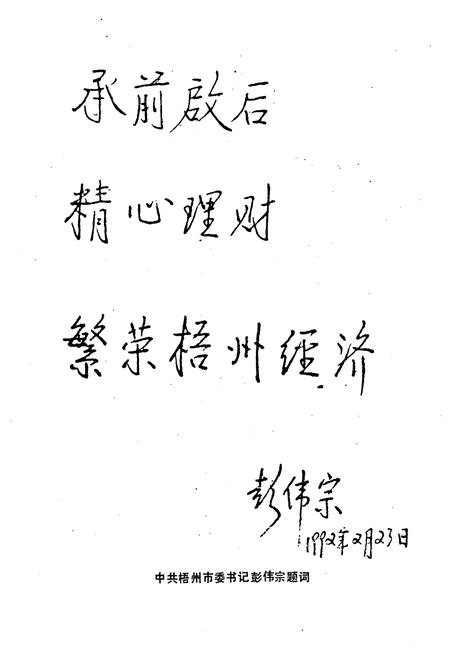 承前啟后
精心理财
繁荣梧州经济
彭伟宗
1992年2月23日
中共梧州市委书记彭伟宗题词